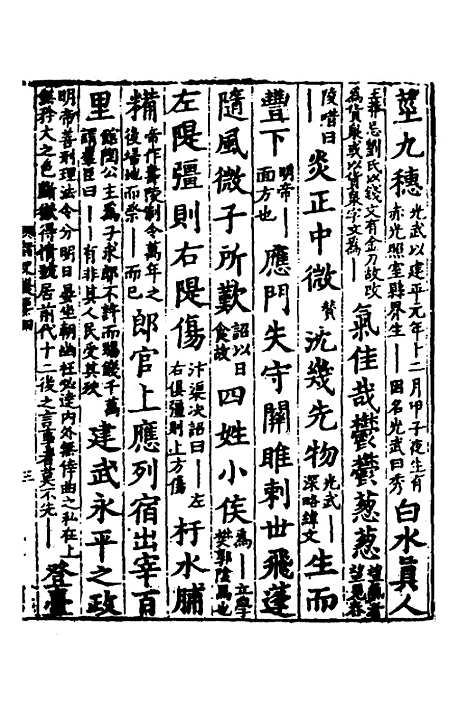 莖九穗光武以建平元年十二月甲子夜生有赤光照室縣界生——因名光武曰秀白水真人
王莽忌劉氏以錢文有金刀故改為貨泉或以貨泉字文為——氣佳哉鬱鬱葱葱望氣者望見舂
陵唶曰炎正中微贊沈幾先物光武——深略緯文生而
豐下明帝——面方也應門失守關雎刺世飛蓬
隨風微子所歎詔以日食故四姓小侯為——立學樊郭陰馬也
左隄彊則右隄傷汴渠决詔曰——左右俱彊則上方傷杅水脯
糒帝作壽陵制令萬年之後埽地而祭——而已郎官上應列宿出宰百
里館陶公主為子求郎不許而賜錢千萬謂羣臣曰——有非其人民受其殃建武永平之政
明帝善刑理法令分明日晏坐朝幽枉必達内外無倖曲之私在上無矜大之色斷獄得情號居前代十二後之言事者莫不先——登臺
三